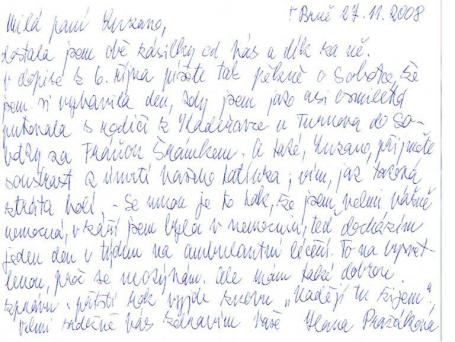 v Brně 27.11.2008
Milá paní Zuzano,
dostala jsem obě zásilky od Vás a dík za ně.
V dopise z 6. října píšete tak pěkně o Sobotce, že
jsem si vybavila den, kdy jsem jako asi osmiletá
putovala s rodiči z Hladišovce u Turnova do So-
botky za Fráňou Šrámkem. A také, Zuzano, přijměte
soustrast z úmrtí Vašeho tatínka; vím, jak taková
ztráta bolí. - Se mnou je to tak, že jsem velmi vážně
nemocná, v září jsem byla v nemocnici, teď docházím
jeden den v týdnu na ambulantní léčení. To na vysvět-
lenou, proč se neozývám. Ale mám také dobrou
zprávu: příští rok vyjde znovu „Nadějí tu žijem".
Velmi srdečně Vás zdravím Vaše Hana Pražáková